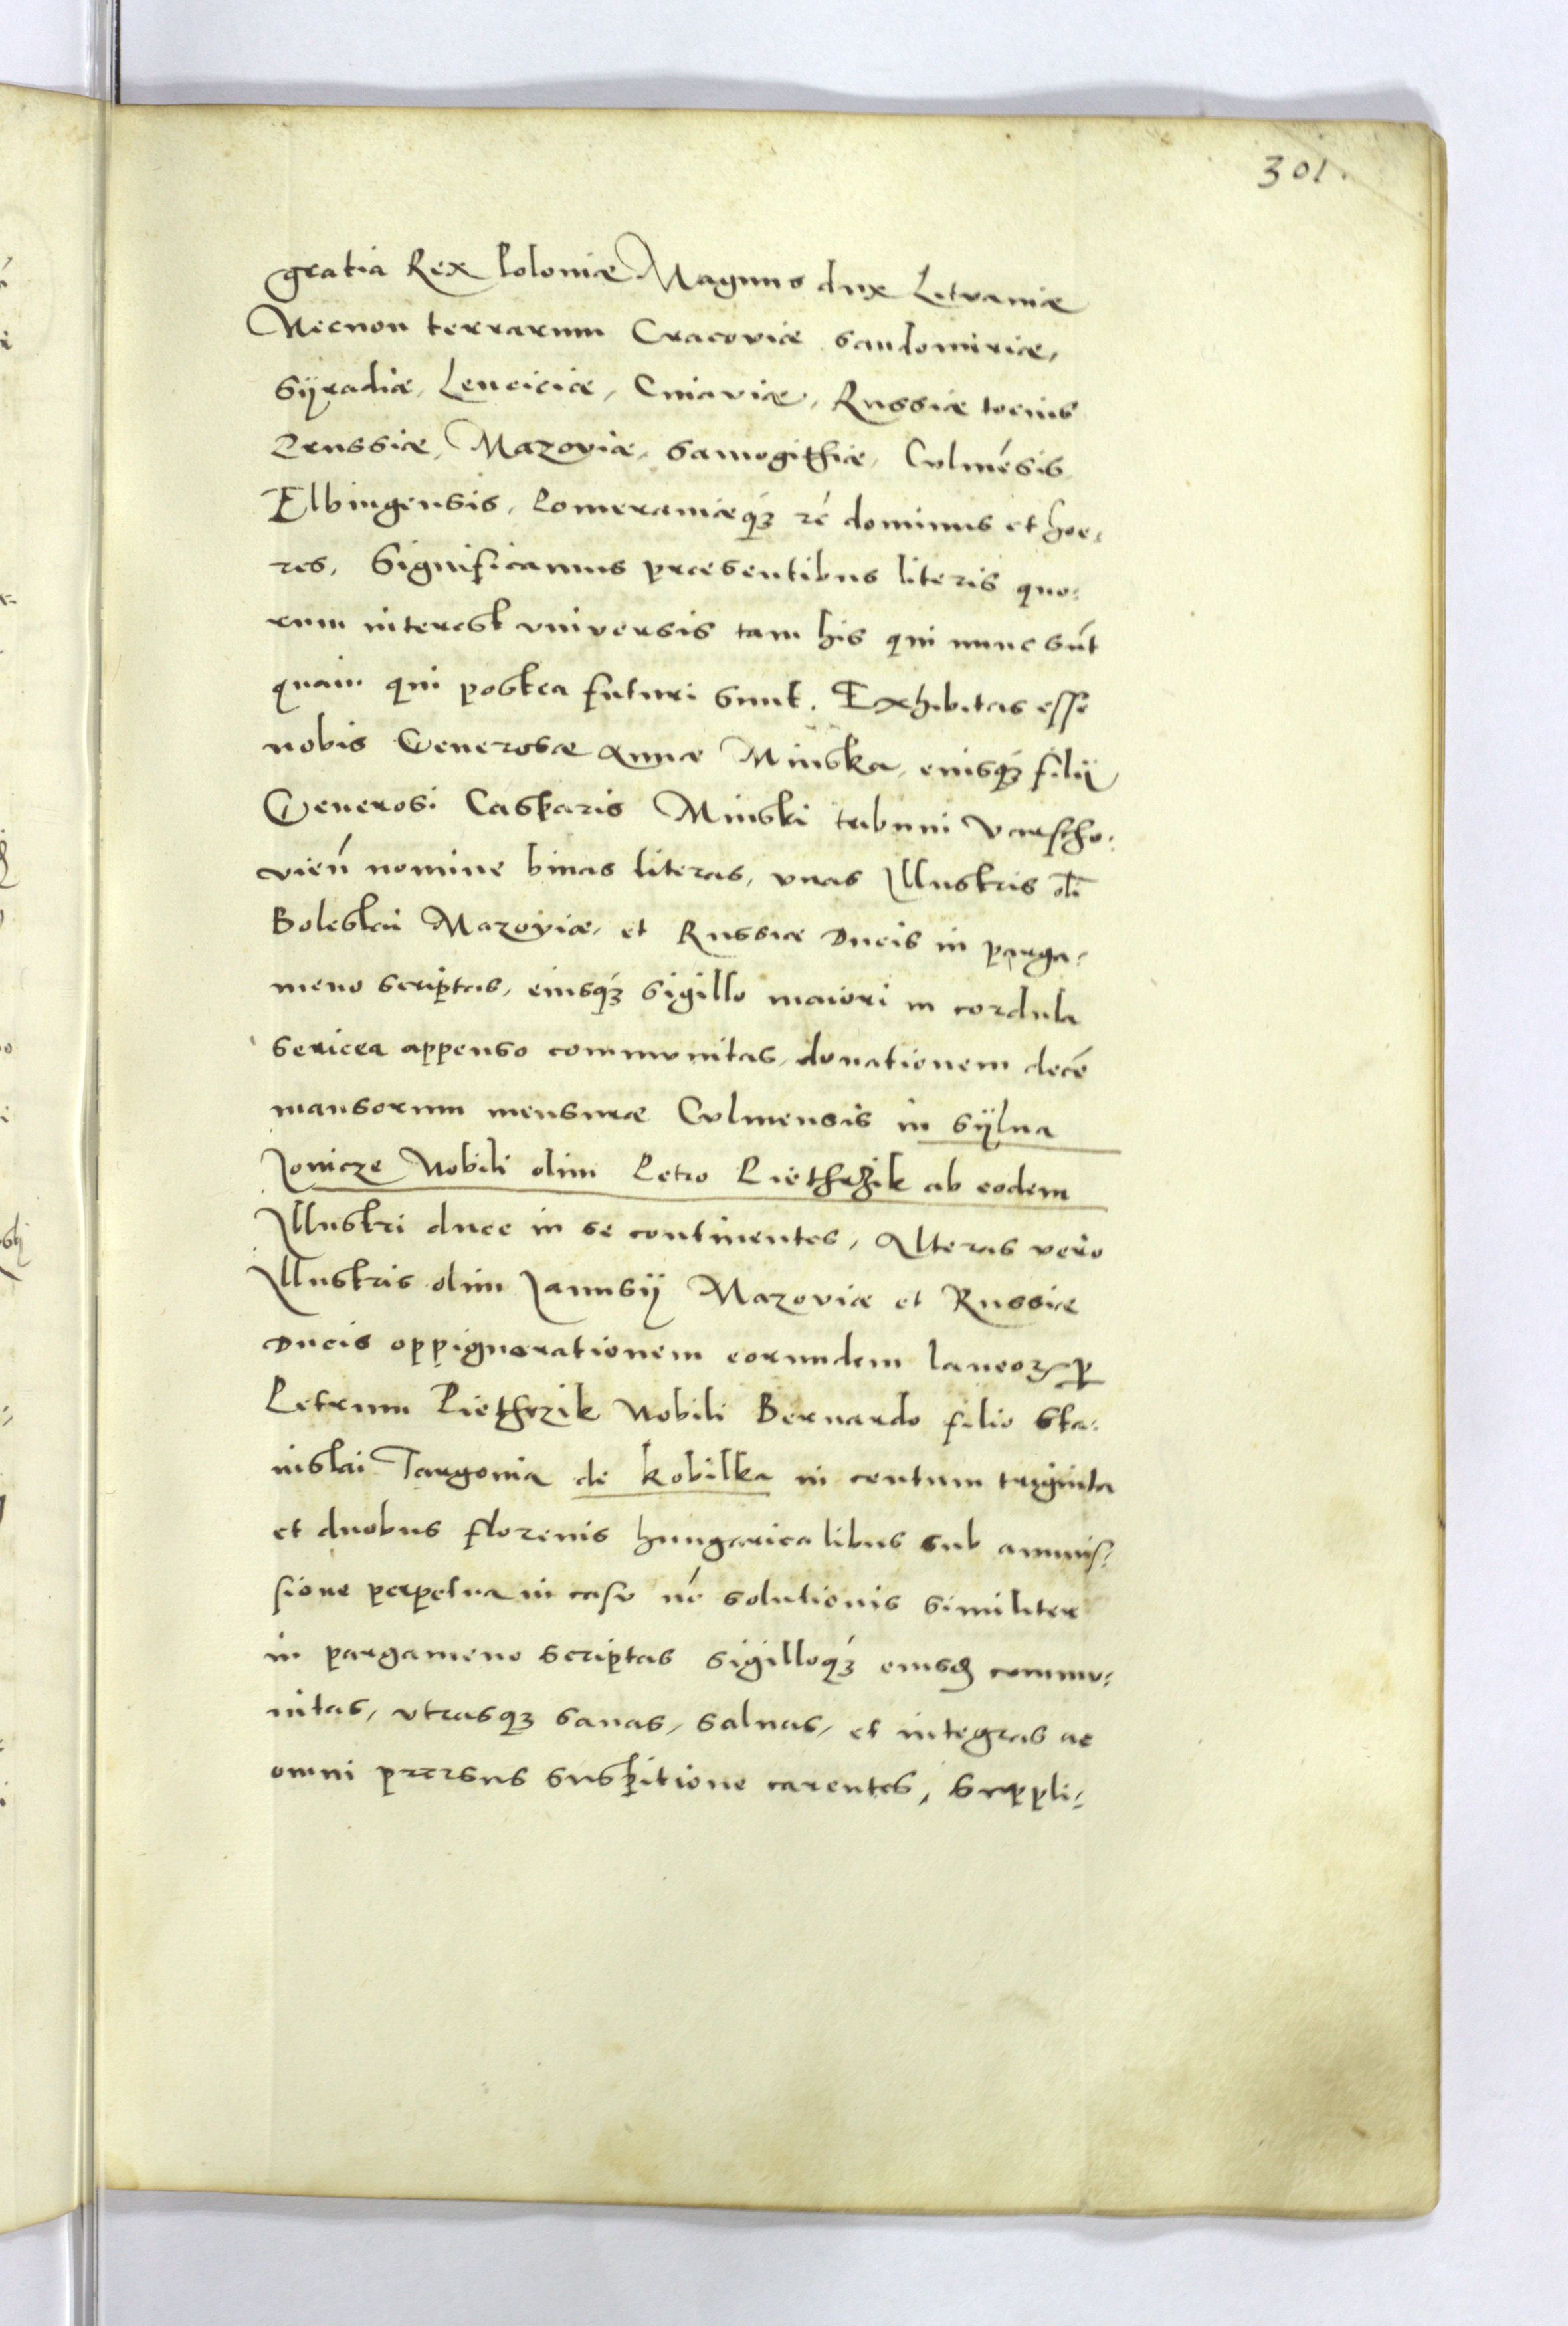 301.
gratia Rex Poloniæ Magnus dux Lituaniæ
Necnon terrarum Cracoviæ Sandomiriæ,
Syradiæ, Lenciciæ, Cuiaviæ, Russiæ tocius
Prussiæ, Mazoviæ, Samogithiæ, Culmēsis
Elbingensis, Pomeraniæqꝫ rē dominus et hoe,
res, Significamus præsentibus literis quo:
rum interest vniversis tam his qui nunc sūt
quam qui postea futuri sunt. Exhibitas esse
nobis Generosæ Annæ Minska, eiusqꝫ filij
Generosi Casparis Minski tribuni Varscho:
vieñ nomine binas literas, vnas Illustris oli
Boleslai Mazoviæ, et Russiæ Ducis in parga,
meno scriptas, eiusqꝫ sigillo maiori in cordula
sericea appenso communitas, donationem decē
mansorum mensuræ Culmensis in sÿlua
Jonicze Nobili olim Petro Piethrzik ab eodem
Illustri duce in se continentes, Alteras vero
Illustris olim Janusij Mazoviæ et Russiæ
Ducis oppignorationem eorundem laneoꝝ ꝑ
Petrum Piethrzik Nobili Bernardo filio Sta:
nislai Targonia de Kobilka in centum triginta
et duobus florenis hungaricalibus sub ammis:
sione perpetua in casu nō solutionis similiter
in pargameno scriptas sigilloqꝫ eiusd commu:
nitas, vtrasqꝫ sanas, saluas, et integras ac
omni prorsus suspitione carentes, Suppli: